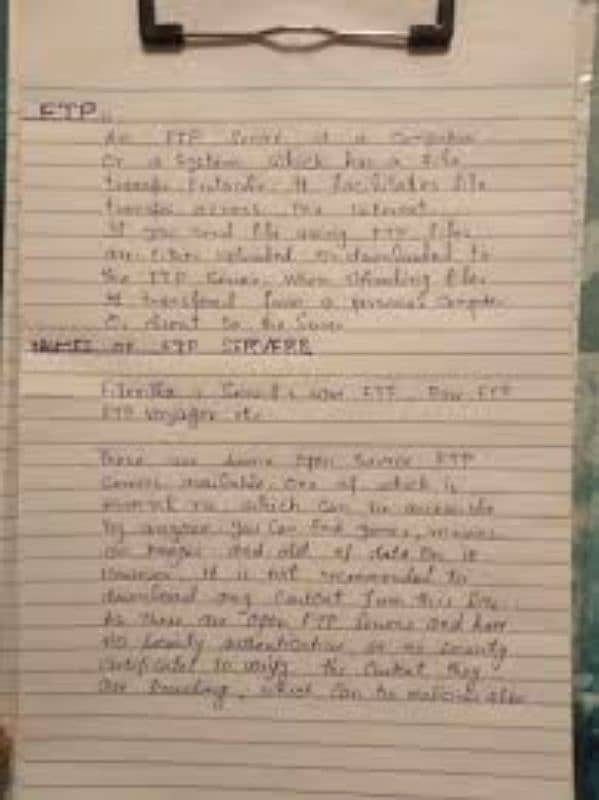 FTP
An FTP Server is a Computer
Or a System which has a file
transfer Protocol. It facilitates file
transfer across the internet.
If you send file using FTP files
are either uploaded or downloaded to
the FTP Server. When uploading files
it transfered from a personal Computer
Or client to the Server
NAMES OF FTP SERVERS
FTP Voyager etc
These are some open source FTP
Servers available. One of which is
which can be accessible
by anyone you can find games, movies
and all of data on it
However, it is not recommended to
download any Content from this Site.
As these are open FTP Servers and have
no security authentication or no security
certificates to verify the Content they
are Providing, which can be malicious also